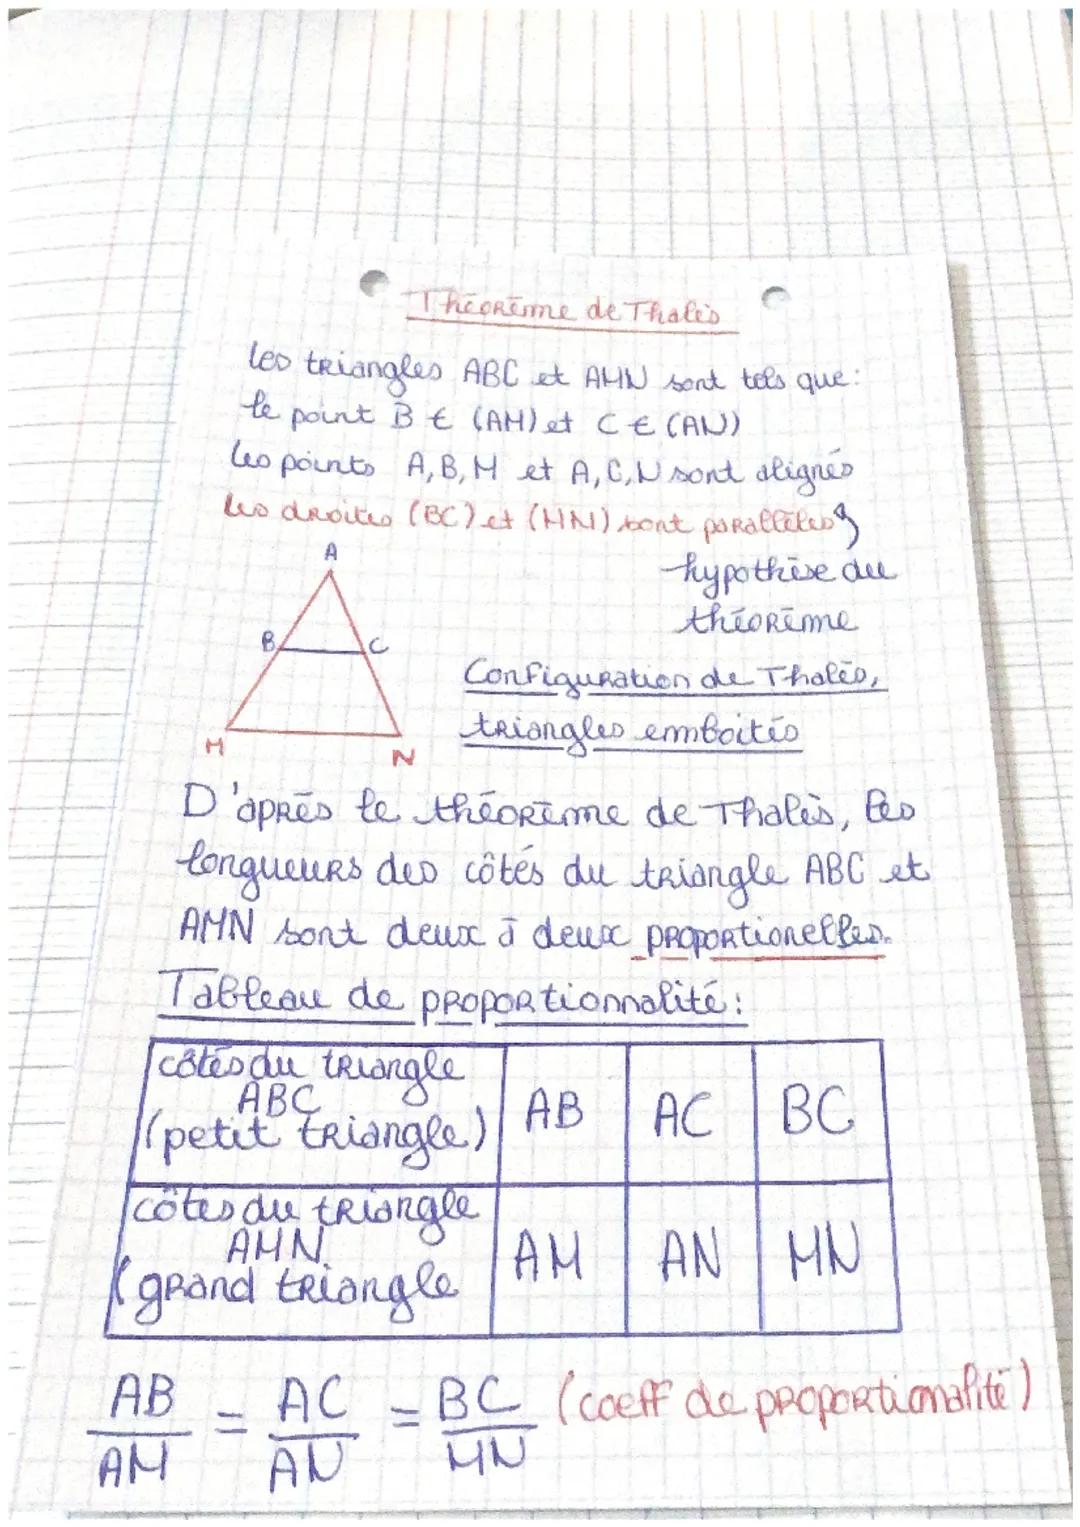 Théorème de Thalès
les triangles ABC et AMN sont tels que:
le point B ∈ (AM) et C ∈ (AN)
les points A, B, M et A, C, N sont alignés
les droites (BC) et (MN) sont parallèles
hypothèse du
théorème
A
B
C
M
N
Configuration de Thalès,
triangles emboités
D'après le théorème de Thalès, les
longueurs des côtés du triangle ABC et
AMN sont deux à deux proportionelles.
Tableau de proportionnalité:
côtés du triangle
ABC
(petit triangle)
AB
AC
BC
côtés du triangle
AMN
(grand triangle
AM
AN
MN
AB = AC = BC (coeff de proportionalité)
AM AN MN